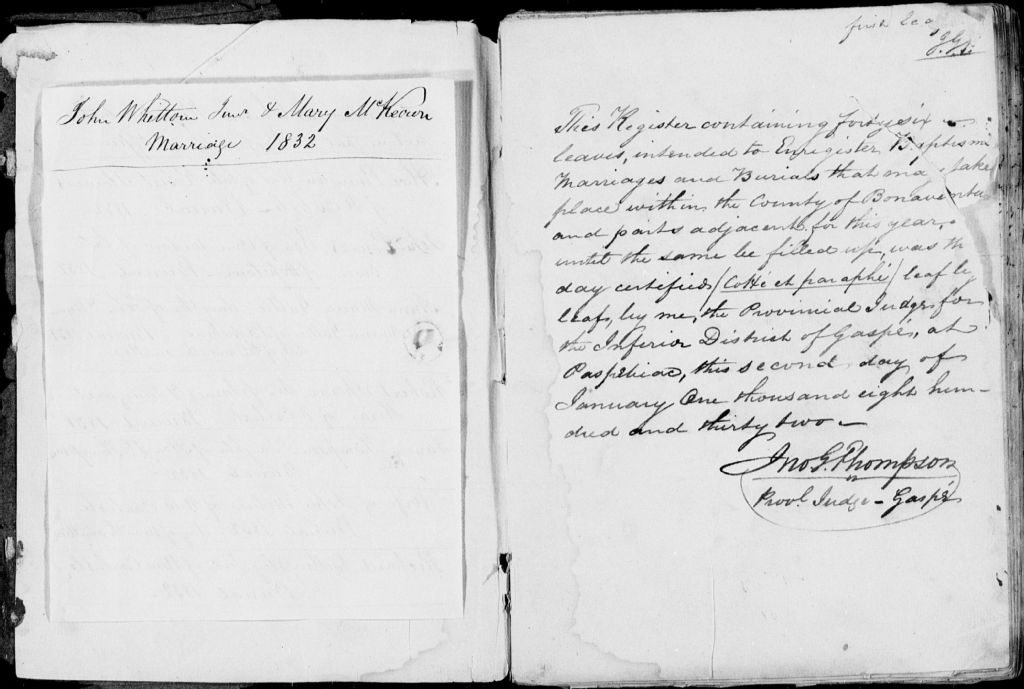 John Whittom Junr & Mary McKeown
Marriage 1832
first Lea
J.G.T.
This Register containing forty six
leaves, intended to Enregister B ptisms
Marriages and Burials that ma take
place within the County of Bonaventu
and parts adjacent for this year,
until the same be filled up, was th
day certified (Cotté et paraphé) leaf by
leaf, by me, the Provincial Judge for
the Inferior District of Gaspé, at
Paspébiac, this second day of
January One thousand eight hun-
dred and thirty two —
Jno G. Thompson
Provl. Judge - Gaspé